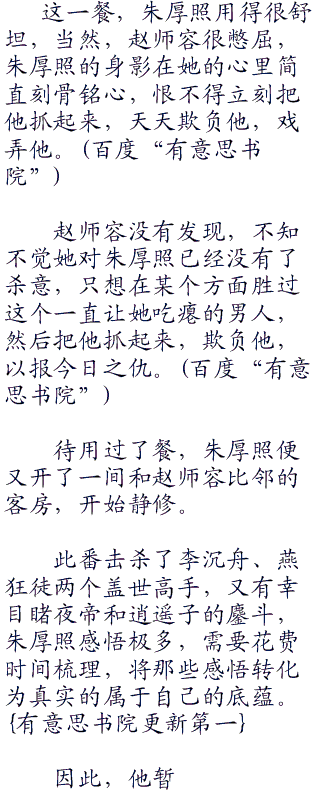 这一餐，朱厚照用得很舒
坦，当然，赵师容很憋屈，
朱厚照的身影在她的心里简
直刻骨铭心，恨不得立刻把
他抓起来，天天欺负他，戏
弄他。(百度“有意思书
院”)
赵师容没有发现，不知
不觉她对朱厚照已经没有了
杀意，只想在某个方面胜过
这个一直让她吃瘪的男人，
然后把他抓起来，欺负他，
以报今日之仇。(百度“有意
思书院”)
待用过了餐，朱厚照便
又开了一间和赵师容比邻的
客房，开始静修。
此番击杀了李沉舟、燕
狂徒两个盖世高手，又有幸
目睹夜帝和逍遥子的鏖斗，
朱厚照感悟极多，需要花费
时间梳理，将那些感悟转化
为真实的属于自己的底蕴。
{有意思书院更新第一}
因此，他暂